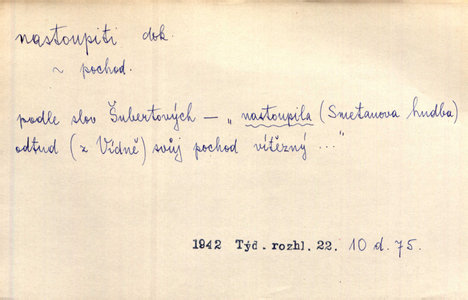 nastoupiti dok.
~ pochod.
podle slov Šubertových — „nastoupila (Smetanova hudba)
odtud (z Vídně) svůj pochod vítězný ..."
1942 Týd. rozhl. 22. 10 d. 75.